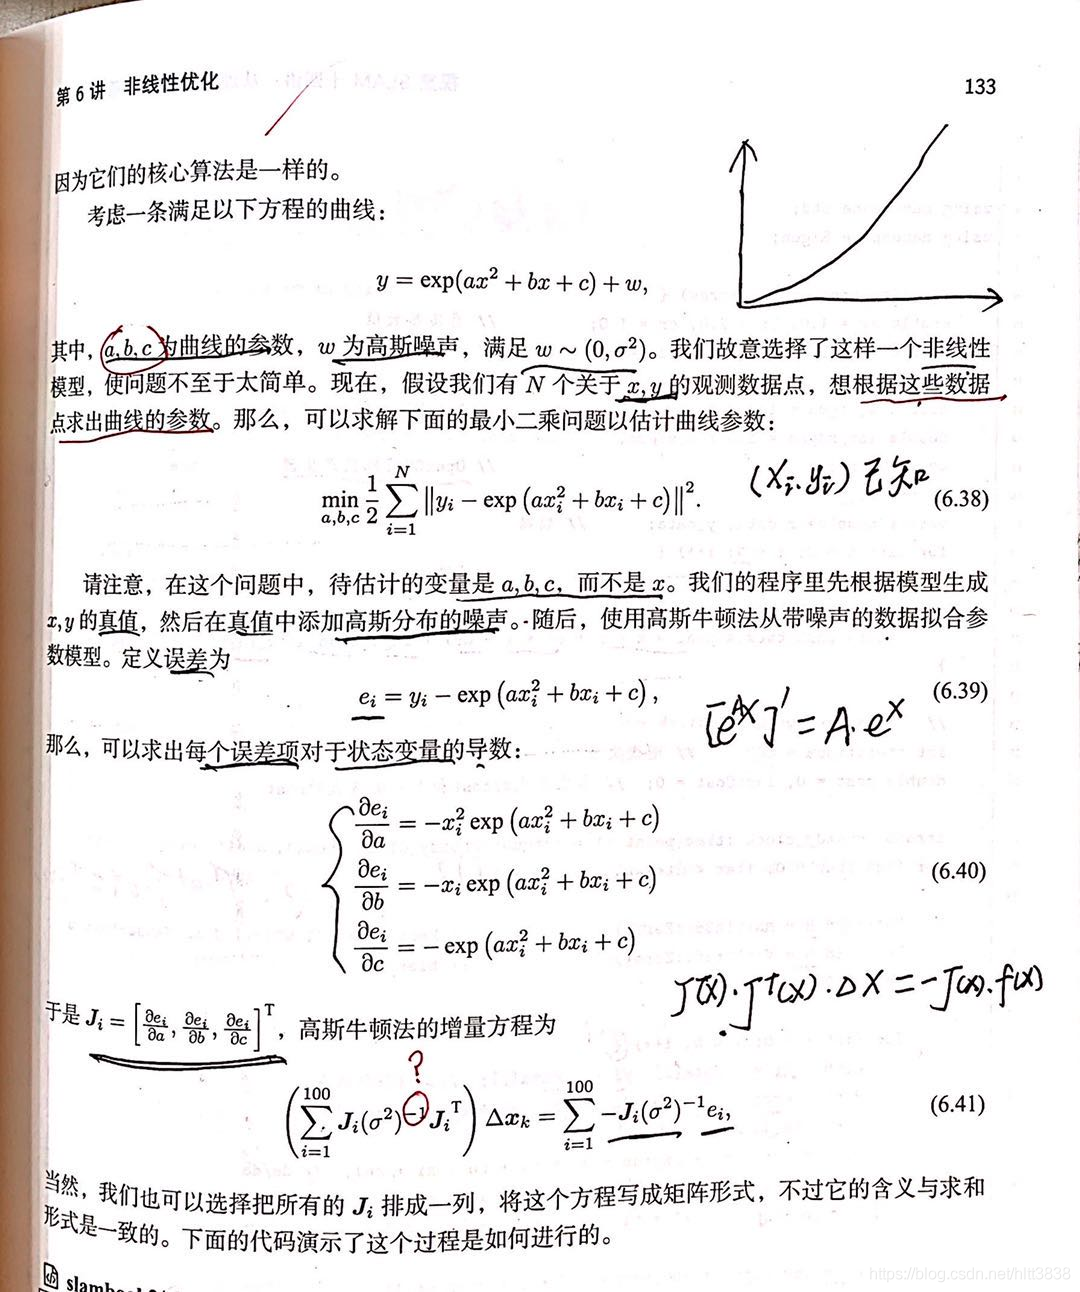 第 6 讲 非线性优化 133
因为它们的核心算法是一样的。
考虑一条满足以下方程的曲线：
y = exp(ax² + bx + c) + w,
其中，a, b, c 为曲线的参数，w 为高斯噪声，满足 w ∼ (0, σ²)。我们故意选择了这样一个非线性
模型，使问题不至于太简单。现在，假设我们有 N 个关于 x, y 的观测数据点，想根据这些数据
点求出曲线的参数。那么，可以求解下面的最小二乘问题以估计曲线参数：
min_{a,b,c} \frac{1}{2} \sum_{i=1}^{N} ‖y_i − exp(ax_i² + bx_i + c)‖². (6.38)
(x_i. y_i) 已知
请注意，在这个问题中，待估计的变量是 a, b, c，而不是 x。我们的程序里先根据模型生成
x, y 的真值，然后在真值中添加高斯分布的噪声。随后，使用高斯牛顿法从带噪声的数据拟合参
数模型。定义误差为
e_i = y_i − exp(ax_i² + bx_i + c), (6.39)
[e^{AX}]' = A·e^X
那么，可以求出每个误差项对于状态变量的导数：
\frac{∂e_i}{∂a} = −x_i² exp(ax_i² + bx_i + c)
\frac{∂e_i}{∂b} = −x_i exp(ax_i² + bx_i + c) (6.40)
\frac{∂e_i}{∂c} = − exp(ax_i² + bx_i + c)
J(X)·J^T(X)·ΔX = −J(X)·f(X)
于是 J_i = [\frac{∂e_i}{∂a}, \frac{∂e_i}{∂b}, \frac{∂e_i}{∂c}]^T，高斯牛顿法的增量方程为
?
(\sum_{i=1}^{100} J_i(σ²)^{-1} J_i^T) Δx_k = \sum_{i=1}^{100} −J_i(σ²)^{-1} e_i, (6.41)
当然，我们也可以选择把所有的 J_i 排成一列，将这个方程写成矩阵形式，不过它的含义与求和
形式是一致的。下面的代码演示了这个过程是如何进行的。
https://blog.csdn.net/hltt3838